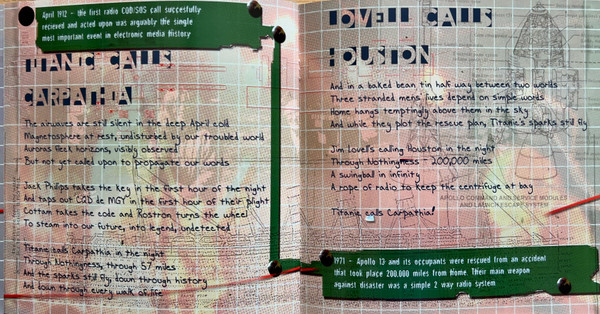 April 1912 - the first radio CQD/SOS call succesfully
recieved and acted upon was arguably the single
most important event in electronic media history
TITANIC CALLS
CARPATHIA
The airwaves are still silent in the deep April cold
Magnetosphere at rest, undisturbed by our troubled world
Auroras fleck horizons, visibly observed
But not yet called upon to propagate our words
Jack Philips takes the key in the first hour of the night
And taps out CQD de MGY in the first hour of their plight
Cottam takes the code and Rostron turns the wheel
To steam into our future, into legend, undetected
Titanic calls Carpathia in the night
Through Nothingness, through 57 miles
And the sparks still fly, down through history
And down through every walk of life
LOVELL CALLS
HOUSTON
And in a baked bean tin half way between two worlds
Three stranded mens' lives depend on simple words
Home hangs temptingly above them in the sky
And while they plot the rescue plan, Titanic's sparks still fly
Jim Lovell's calling Houston in the night
Through Nothingness - 200,000 miles
A swingball in infinity
A rope of radio to keep the centrifuge at bay
APOLLO COMMAND AND SERVICE MODULES
AND LAUNCH ESCAPE SYSTEM
Titanic calls Carpathia!
1971 - Apollo 13 and its occupants were rescued from an accident
that took place 200,000 miles from Home. Their main weapon
against disaster was a simple 2 way radio system